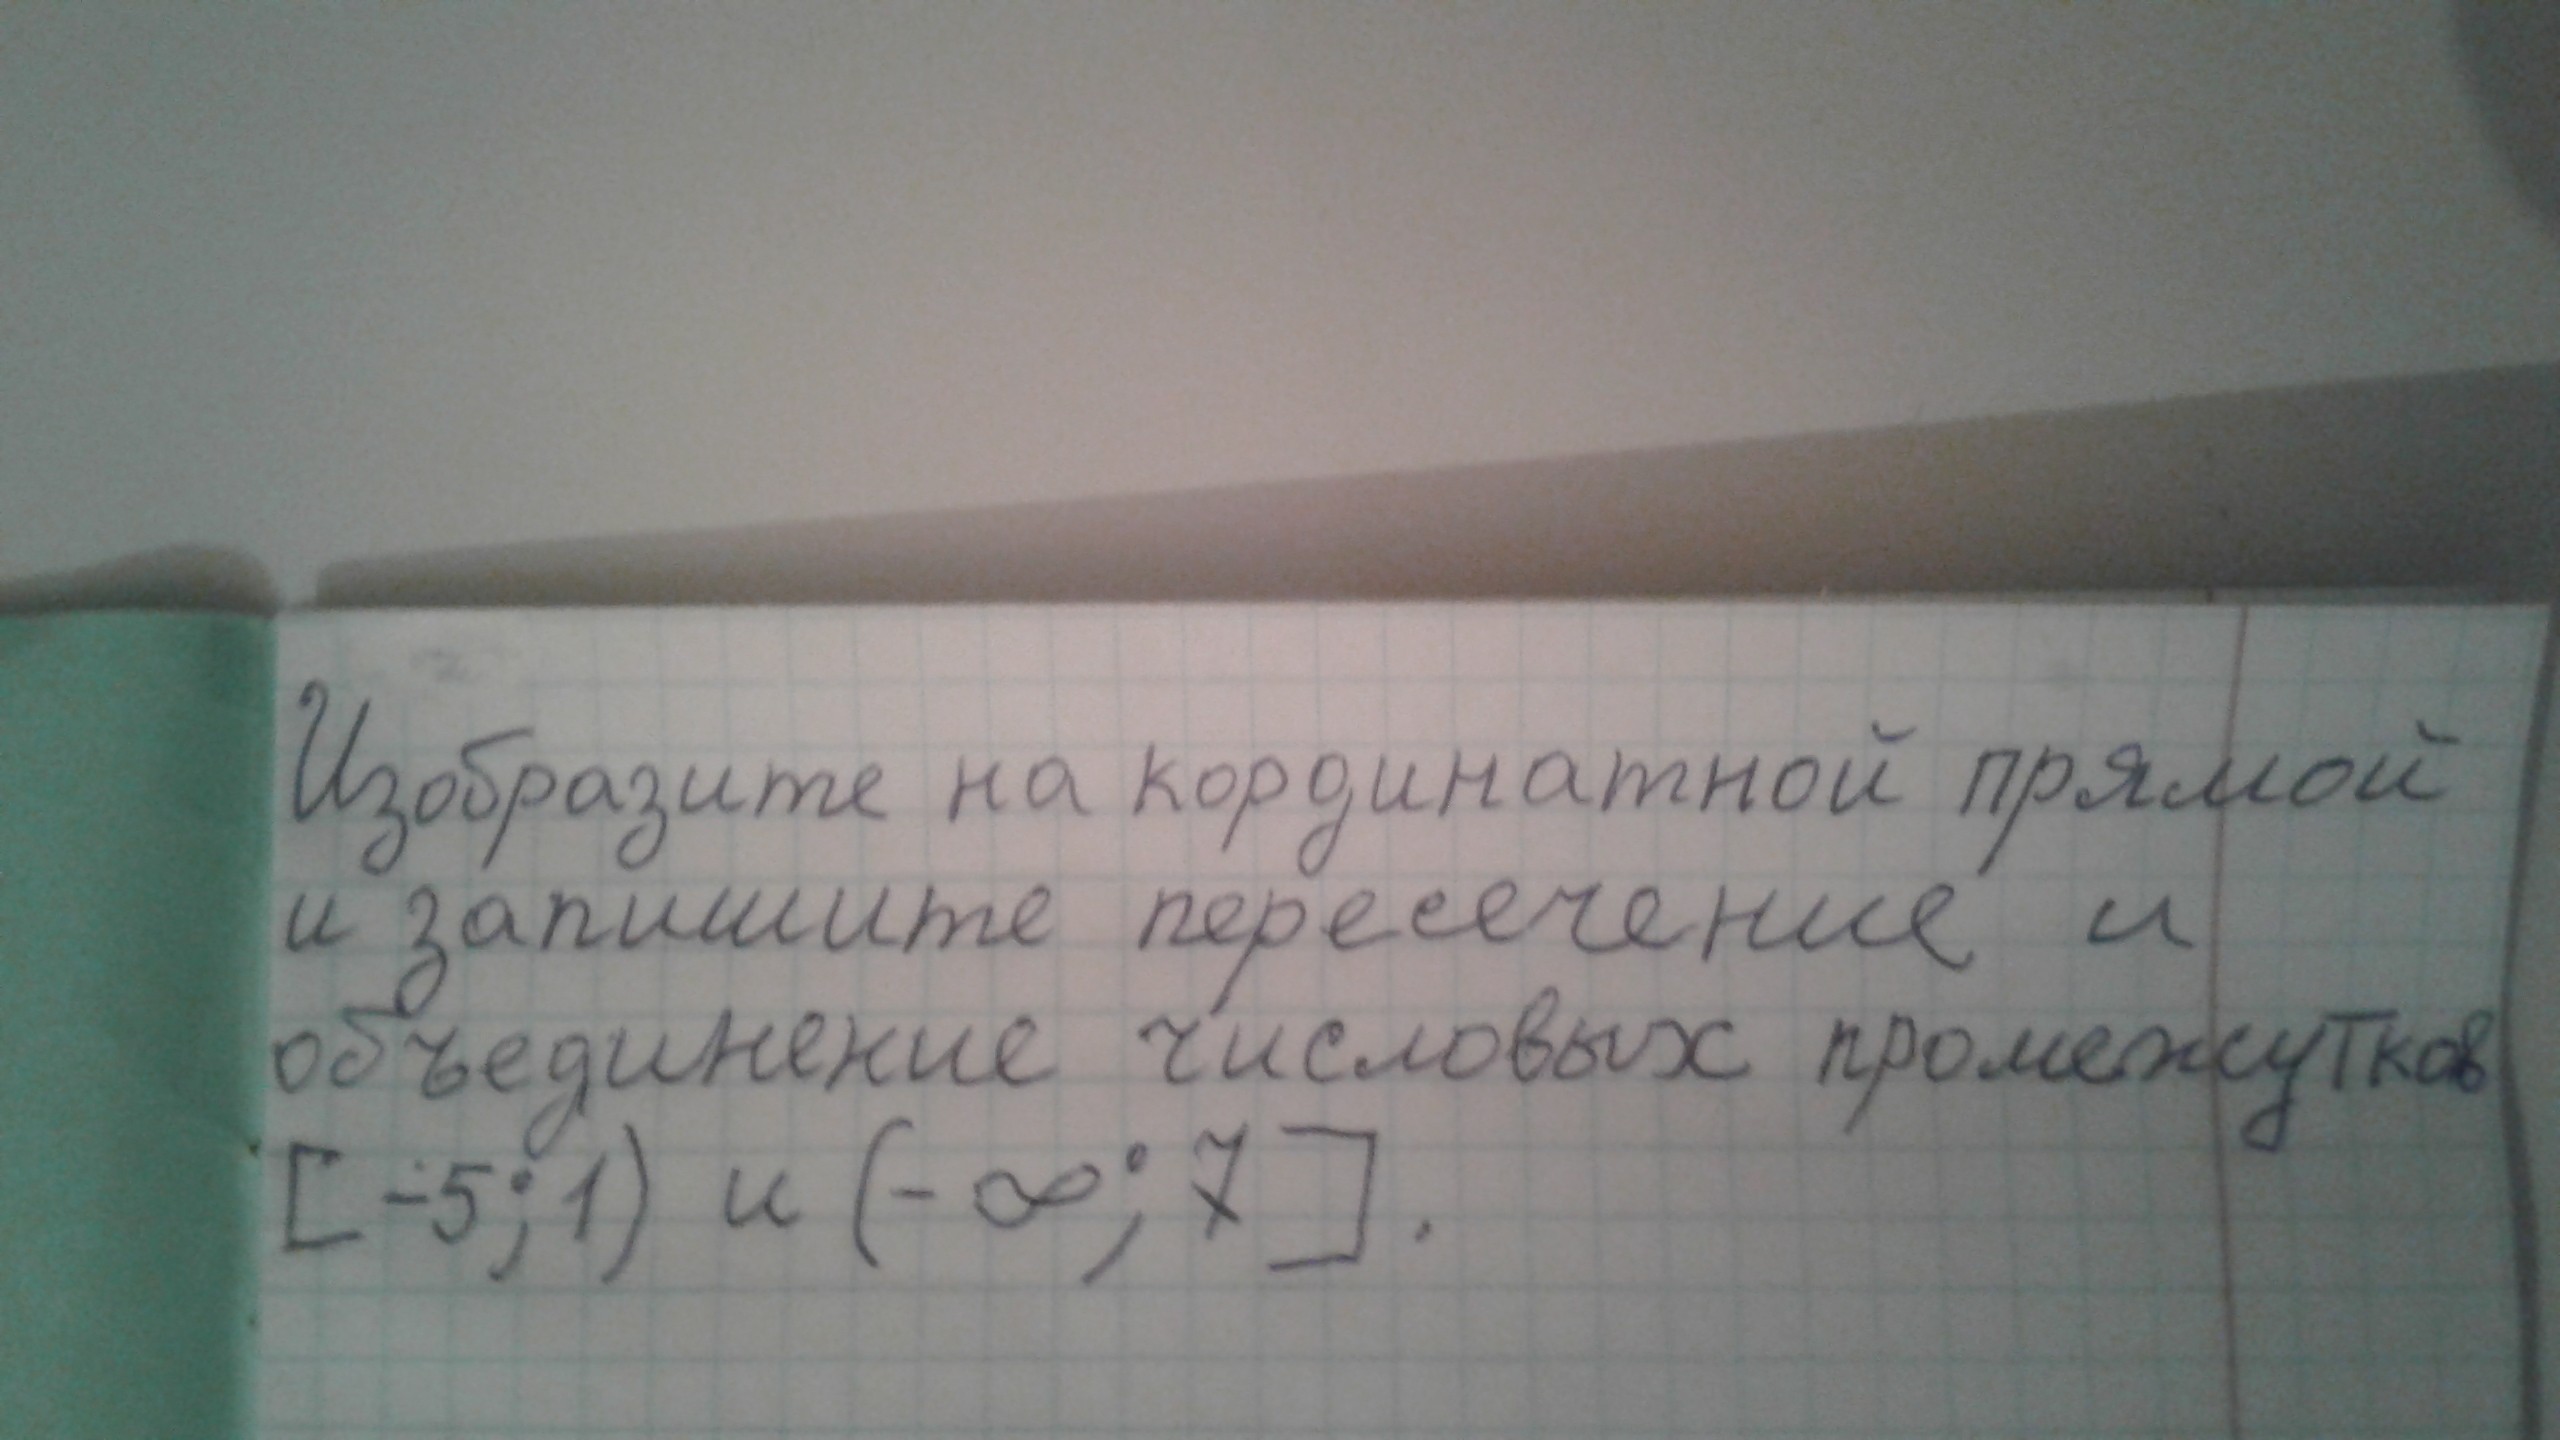 Изобразите на кординатной прямой
и запишите пересечение и
объединение числовых промежутков
[-5;1) и (-∞;7].